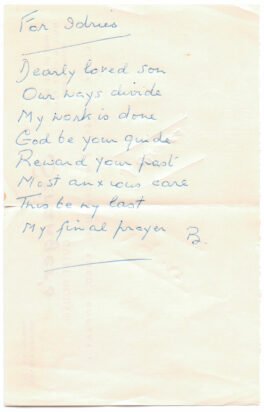 For Idries
Dearly loved son
Our ways divide
My work is done
God be your guide
Reward your past
Most anxious care
This be my last
My final prayer B.